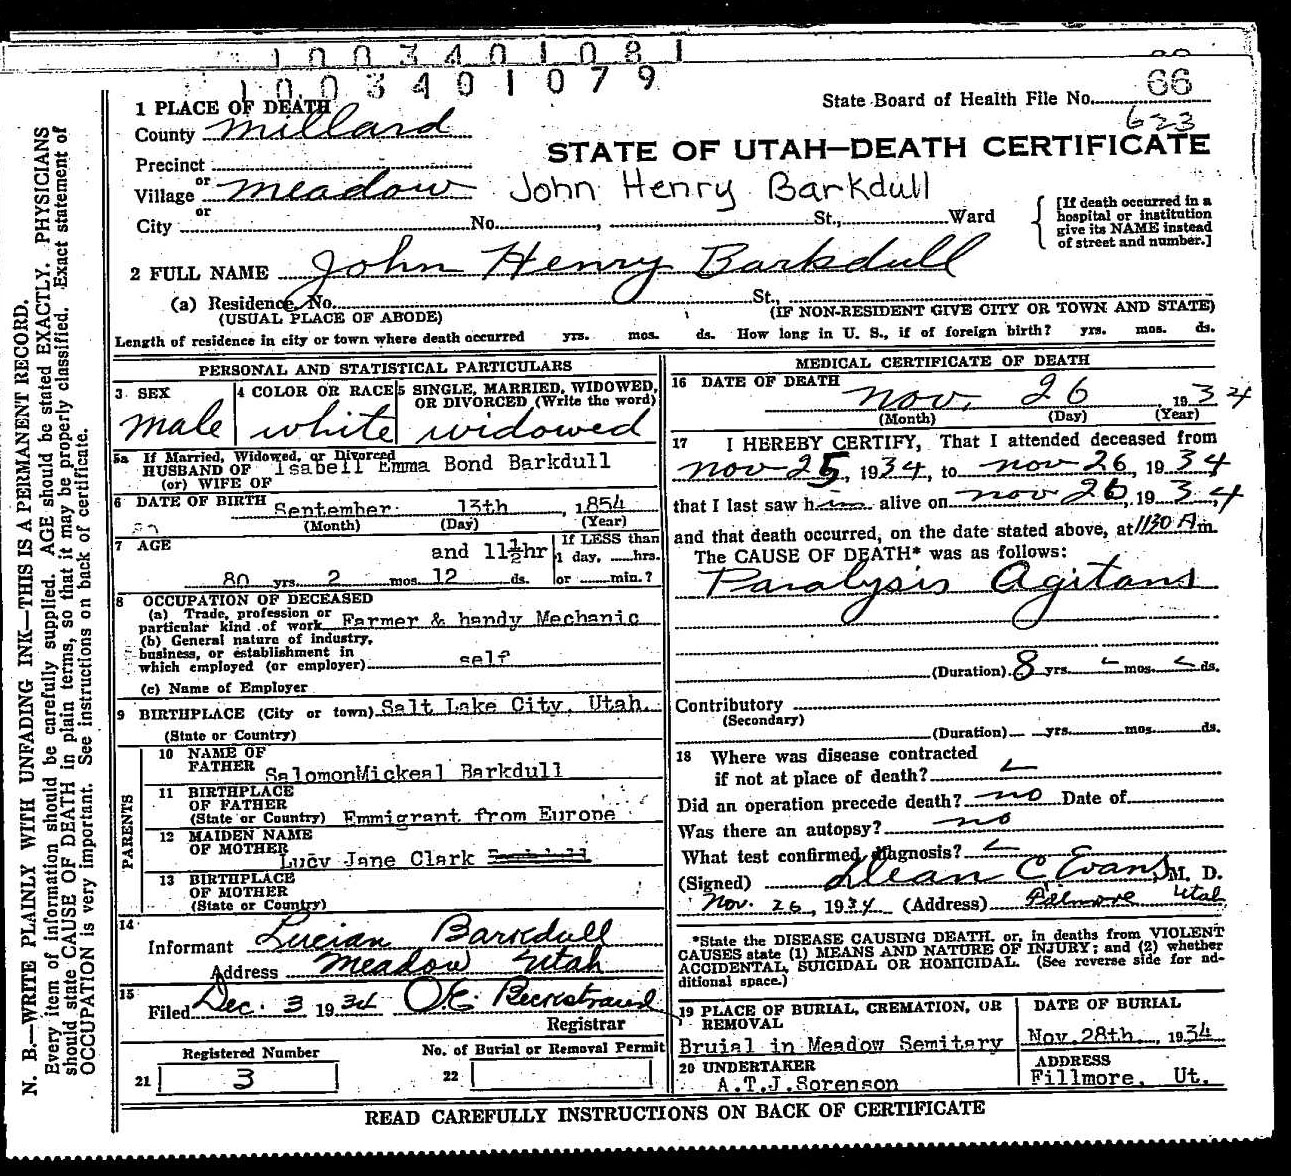 1003401081
1003401079
66
State Board of Health File No.
623
1 PLACE OF DEATH
County Millard
STATE OF UTAH—DEATH CERTIFICATE
Precinct
or
Village Meadow John Henry Barkdull
or
City No. , St., Ward
{ [If death occurred in a
hospital or institution
give its NAME instead
of street and number.]
2 FULL NAME John Henry Barkdull
(a) Residence, No. St.,
(USUAL PLACE OF ABODE) (IF NON-RESIDENT GIVE CITY OR TOWN AND STATE)
Length of residence in city or town where death occurred yrs. mos. ds. How long in U. S., if of foreign birth? yrs. mos. ds.
PERSONAL AND STATISTICAL PARTICULARS
3 SEX 4 COLOR OR RACE 5 SINGLE, MARRIED, WIDOWED,
OR DIVORCED (Write the word)
male white widowed
5a If Married, Widowed, or Divorced
HUSBAND OF Isabell Emma Bond Barkdull
(or) WIFE OF
6 DATE OF BIRTH September 13th , 1854
(Month) (Day) (Year)
7 AGE and 11½hr If LESS than
1 day, hrs.
80 yrs. 2 mos. 12 ds. or min.?
8 OCCUPATION OF DECEASED
(a) Trade, profession or
particular kind of work Farmer & handy Mechanic
(b) General nature of industry,
business, or establishment in
which employed (or employer) self
(c) Name of Employer
9 BIRTHPLACE (City or town) Salt Lake City, Utah.
(State or Country)
PARENTS
10 NAME OF
FATHER SalomonMickeal Barkdull
11 BIRTHPLACE
OF FATHER
(State or Country) Emmigrant from Europe
12 MAIDEN NAME
OF MOTHER
Lucy Jane Clark
13 BIRTHPLACE
OF MOTHER
(State or Country)
14
Informant Lucian Barkdull
Address Meadow Utah
15
Filed Dec. 3 1934 O.E. Beckstrand
Registrar
Registered Number No. of Burial or Removal Permit
21 3 22
MEDICAL CERTIFICATE OF DEATH
16 DATE OF DEATH
Nov. 26 , 1934
(Month) (Day) (Year)
17 I HEREBY CERTIFY, That I attended deceased from
Nov 25, 1934, to Nov 26, 1934
that I last saw him alive on Nov 26, 1934,
and that death occurred, on the date stated above, at 1130 A m.
The CAUSE OF DEATH* was as follows:
Paralysis Agitans
(Duration) 8 yrs. mos. ds.
Contributory
(Secondary)
(Duration) yrs. mos. ds.
18 Where was disease contracted
if not at place of death?
Did an operation precede death? no Date of
Was there an autopsy? no
What test confirmed diagnosis?
(Signed) Dean C Evans, M. D.
Nov. 26, 1934 (Address) Filmore Utah
*State the DISEASE CAUSING DEATH, or, in deaths from VIOLENT
CAUSES state (1) MEANS AND NATURE OF INJURY; and (2) whether
ACCIDENTAL, SUICIDAL OR HOMICIDAL. (See reverse side for ad-
ditional space.)
19 PLACE OF BURIAL, CREMATION, OR
REMOVAL
Bruial in Meadow Semitary
DATE OF BURIAL
Nov. 28th , 1934
20 UNDERTAKER
A.T.J.Sorenson
ADDRESS
Fillmore, Ut.
READ CAREFULLY INSTRUCTIONS ON BACK OF CERTIFICATE
N. B.—WRITE PLAINLY WITH UNFADING INK—THIS IS A PERMANENT RECORD.
Every item of information should be carefully supplied. AGE should be stated EXACTLY. PHYSICIANS
should state CAUSE OF DEATH in plain terms, so that it may be properly classified. Exact statement of
OCCUPATION is very important. See instructions on back of certificate.